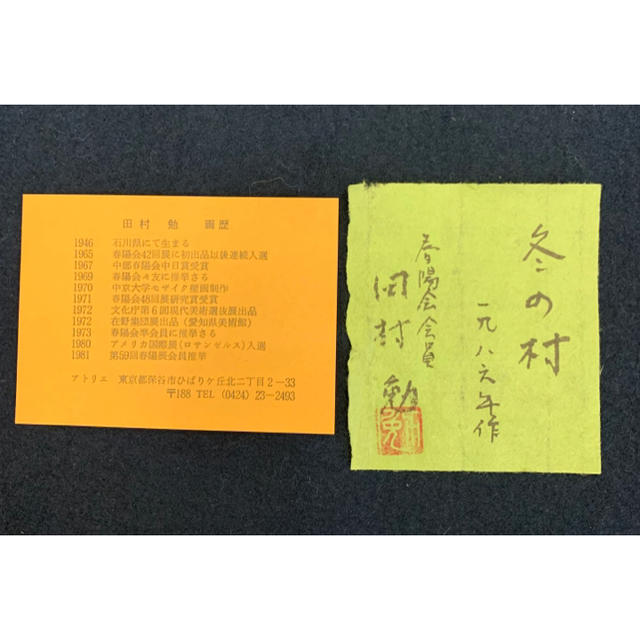 田村 勉 画歴
1946 石川県にて生まる
1965 春陽会42回展に初出品以後連続入選
1967 中部春陽会中日賞受賞
1969 春陽会々友に推挙さる
1970 中京大学モザイク壁画制作
1971 春陽会48回展研究賞受賞
1972 文化庁第6回現代美術選抜展出品
1972 在野集団展出品(愛知県美術館)
1973 春陽会準会員に推挙さる
1980 アメリカ国際展(ロサンゼルス)入選
1981 第59回春陽展会員推挙
アトリエ 東京都保谷市ひばりケ丘北二丁目2-33
〒188 TEL (0424) 23-2493
冬の村
一九八六年作
春陽会会員
田村 勉